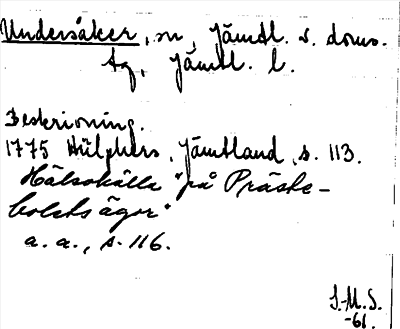 Undersåker, sn, Jämtl. s. doms.
tg, Jämtl. l.
Beskrivning.
1775 Hülphers, Jämtland, s. 113.
Hälsokälla "på Präste-
bolets ägor"
a. a., s. 116.
S.M.S.
-61.